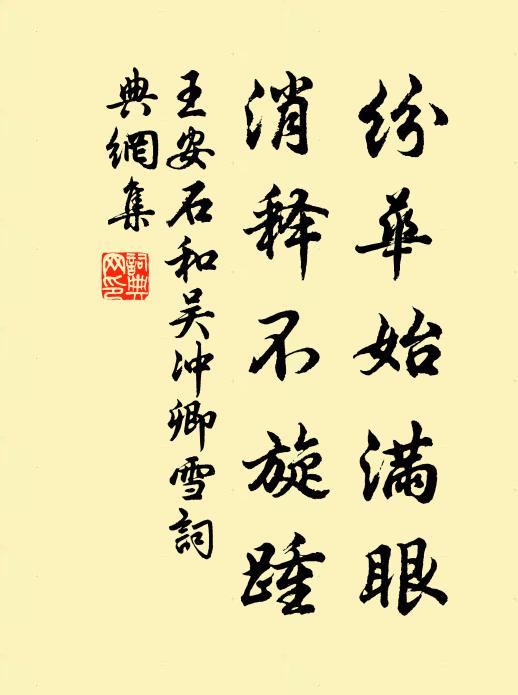 纷华始满眼
消释不旋踵
王安石和吴冲卿雪詞
典網集
詞典网印